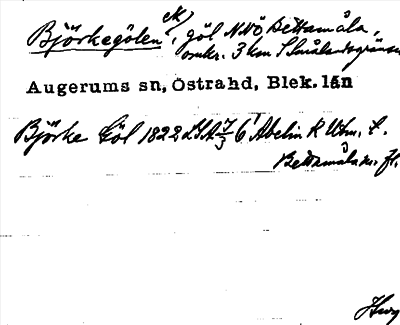 Björkegölen ek, göl NNO Bettamåla,
omkr. 3 km S Smålandsgränsen
Augerums sn, Östrahd, Blek. län
Björke Göl 1822 LSA 7/3 6¹ Abelin K Utm. t.
Bettamåla m. fl.